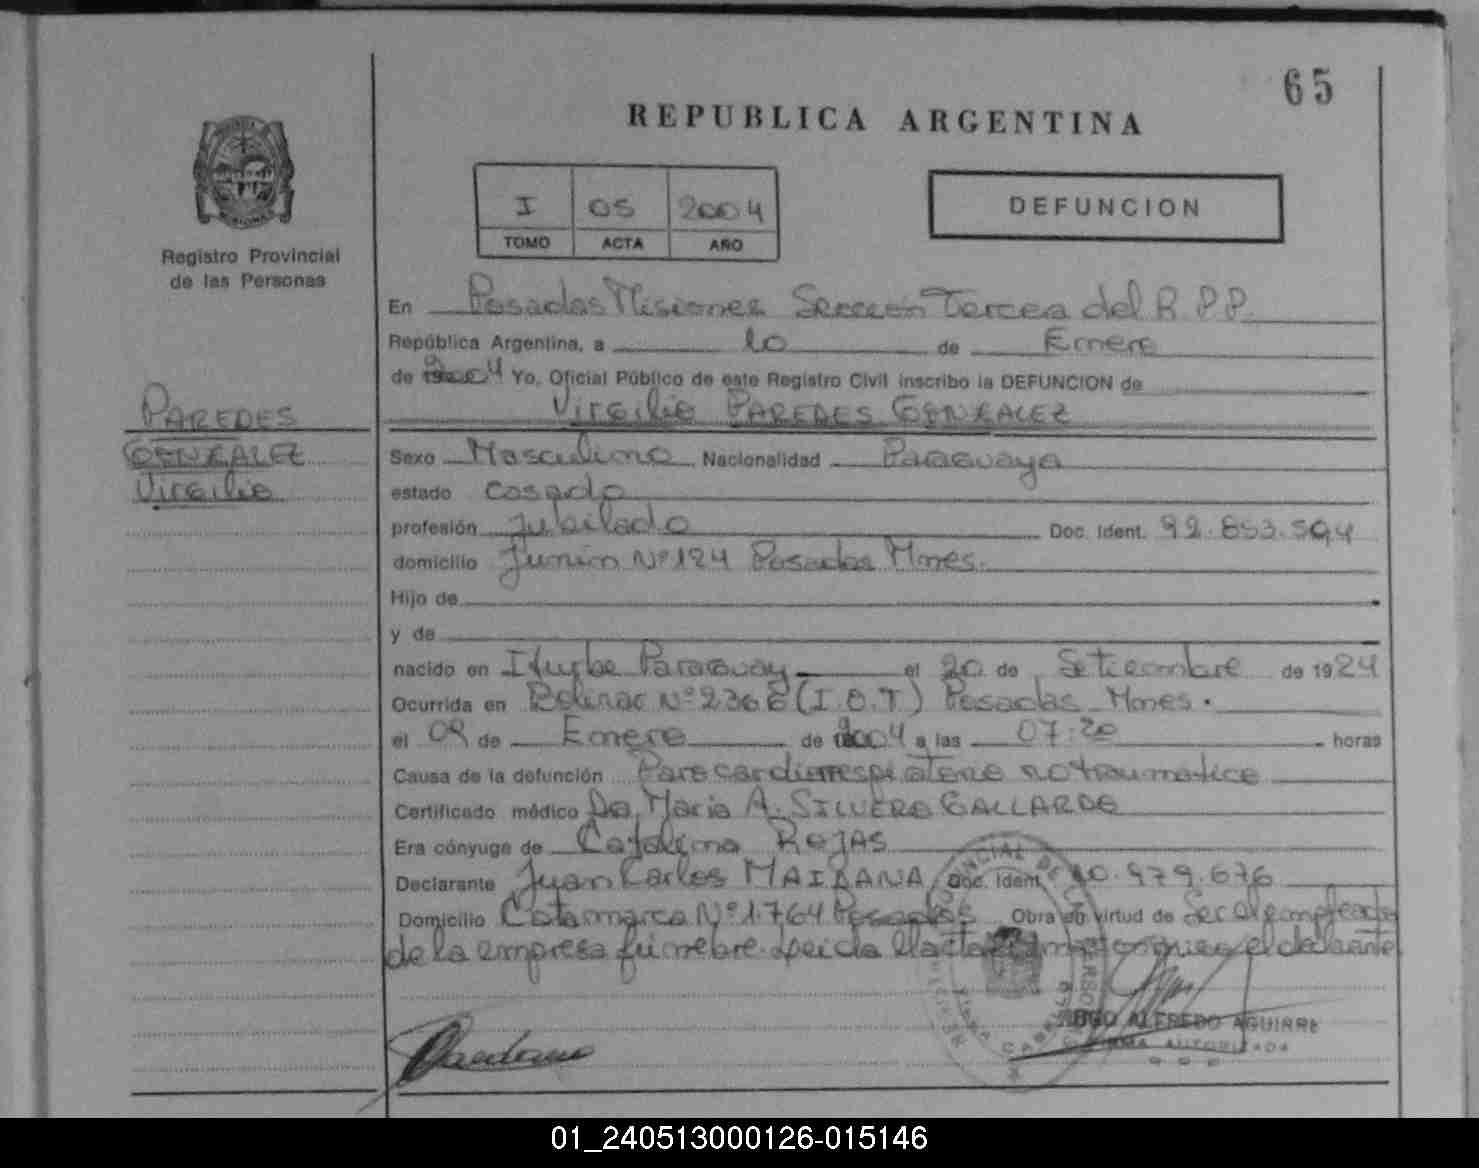 65
REPUBLICA ARGENTINA
I 05 2004
TOMO ACTA AÑO
DEFUNCION
Registro Provincial
de las Personas
En Posadas Misiones Sección Tercera del R.P.P.
República Argentina, a 10 de Enero
de 2004 Yo, Oficial Público de este Registro Civil inscribo la DEFUNCION de
Virgilio PAREDES GONZALEZ
PAREDES
GONZALEZ
Virgilio
Sexo Masculino Nacionalidad Paraguaya
estado Casado
profesión Jubilado Doc. Ident. 92.853.594
domicilio Junín Nº 124 Posadas Mnes.
Hijo de
y de
nacido en Iturbe Paraguay el 20 de Setiembre de 1924
Ocurrida en Bolivar Nº 2368 (I.O.T) Posadas Mnes.
el 09 de Enero de 2004 a las 07:20 horas
Causa de la defunción Paro cardiorrespiratorio no traumatico
Certificado médico Dra Maria A. SILVERO GALLARDO
Era cónyuge de Catalina ROJAS
Declarante Juan Carlos MAIDANA Doc. Ident. 10.979.676
Domicilio Catamarca Nº 1.764 Posadas Obra en virtud de Ser el empleado
de la empresa fúnebre. Leída el acta firma conmigo el declarante
HUGO ALFREDO AGUIRRE
FIRMA AUTORIZADA
01_240513000126-015146